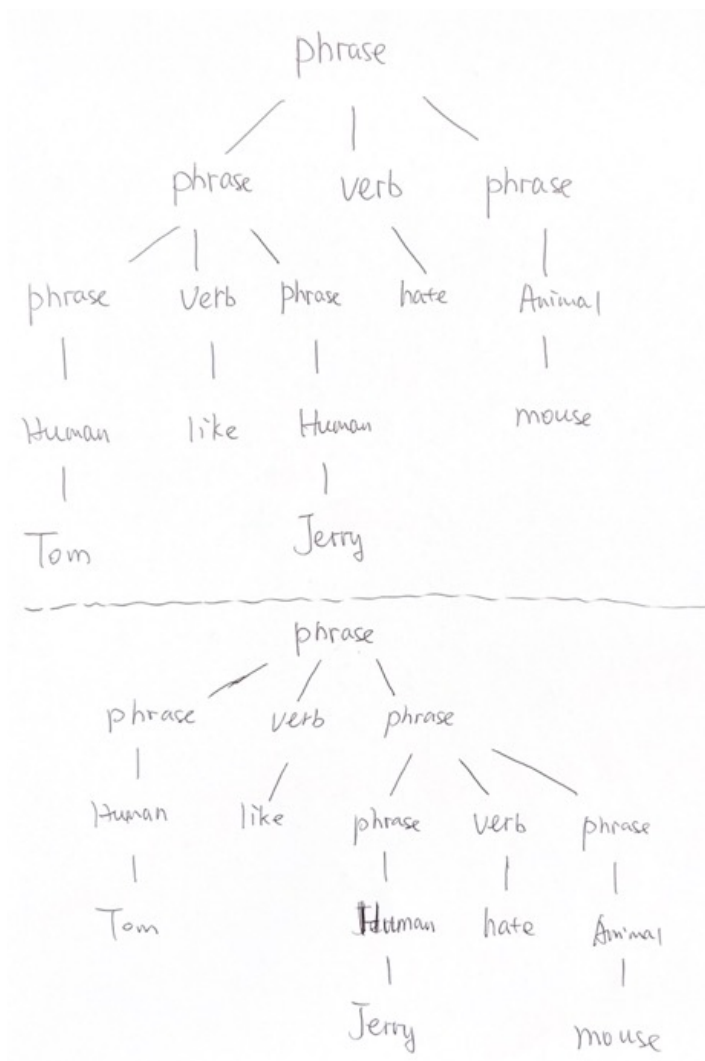 phrase
phrase verb phrase
phrase verb phrase hate Animal
Human like Human mouse
Tom Jerry
phrase
phrase verb phrase
Human like phrase verb phrase
Tom Human hate Animal
Jerry mouse